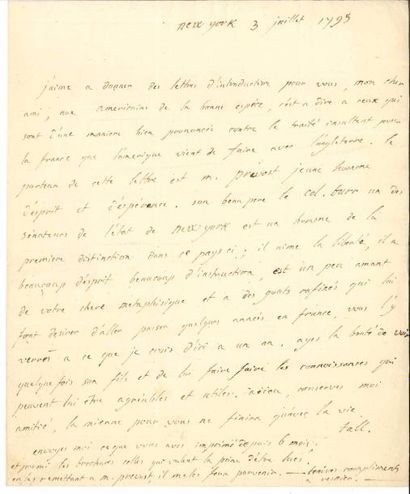 new york 3 juillet 1795
j'aime a donner des lettres d'introduction pour vous, mon cher
ami, aux americains de la bonne espèce, c'est a dire a ceux qui
sont d'une maniere bien prononcée contre le traité insultant pour
la france que l'amerique vient de faire avec l'angleterre. le
porteur de cette lettre est m. prévost jeune homme
d'esprit et d'espérance. son beau pere le col. burr un des
sénateurs de l'état de new york est un homme de la
premiere distinction dans ce pays ci; il aime la liberté, il a
beaucoup d'esprit beaucoup d'instruction, est un peu amant
de votre chere metaphisique et a des gouts rafinés qui lui
font desirer d'aller passer quelques années en france, vous l'y
verrés a ce que je crois d'ici a un an. ayes la bonté de voir
quelque fois son fils et de lui faire faire les connoissances qui
peuvent lui être agréables et utiles. adieu, conserves moi
amitié, la mienne pour vous ne finira qu'avec la vie
tall.
envoyes moi ce que vous avés imprimé depuis 6 mois,
et parmi les brochures celles qui valent la peine d'être lues,
en les remettant a m. prevost, il me les fera parvenir. — compliments